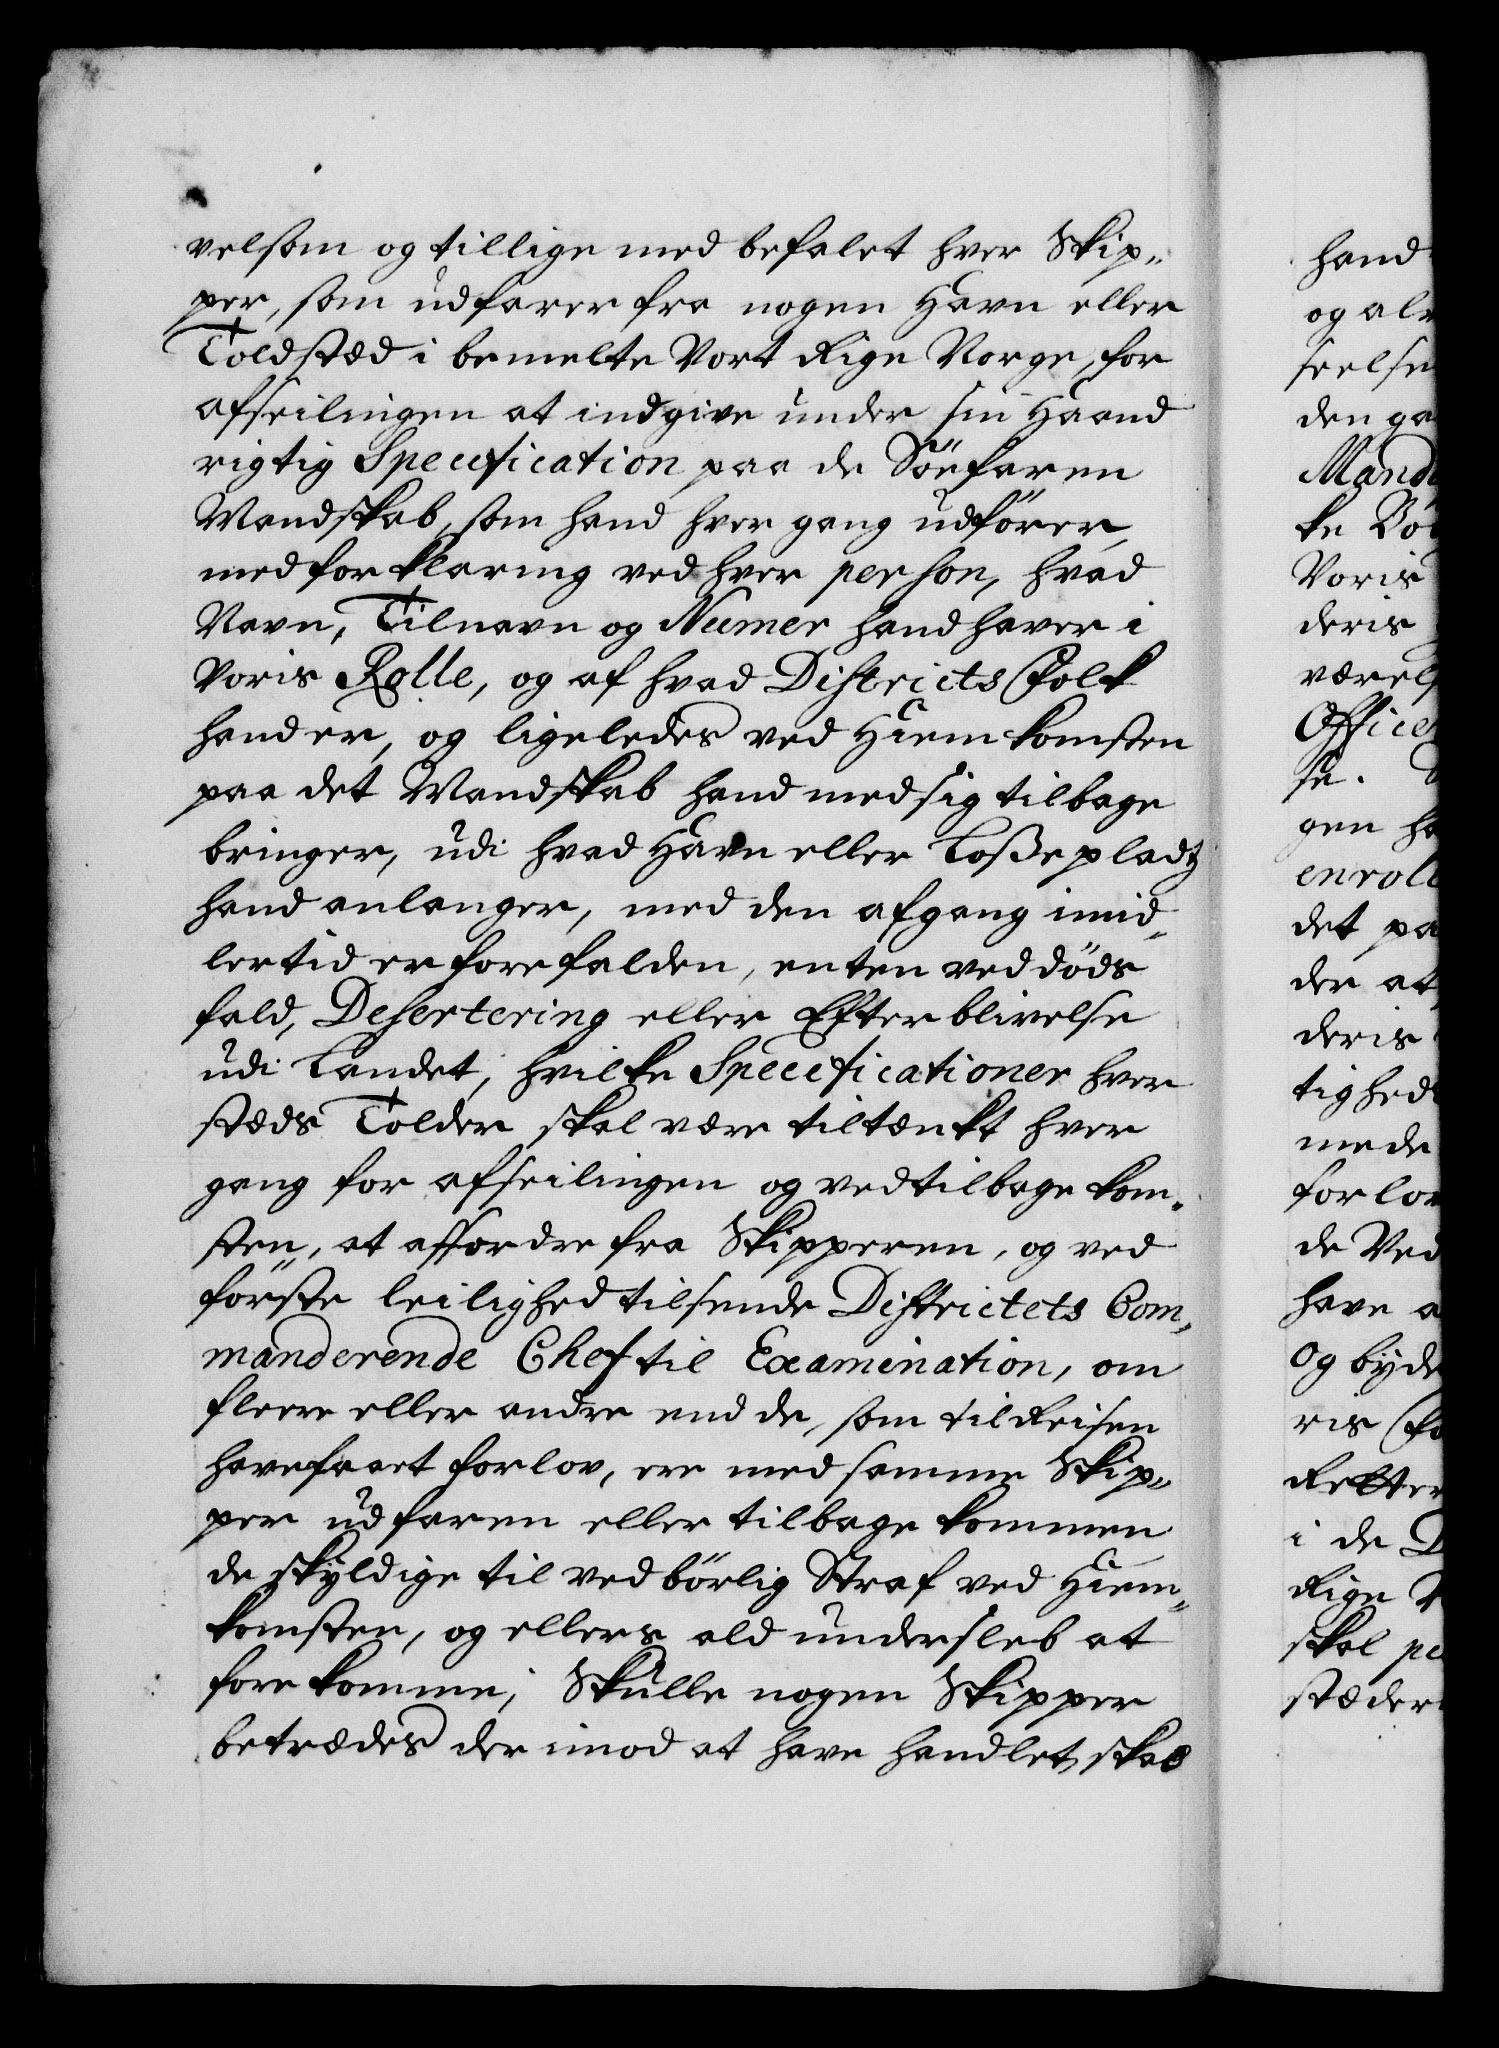 velsom og tillige med befalet hver Skip„
per, som udfarer fra nogen Havn eller
Toldstæd i bemelte Vort Rige Norge, for
afseilingen at indgive under sin Haand
rigtig Specification paa de Söefaren
Mandskab, som hand hver gang udförer,
med forklaring ved hver person, hvad
Navn, Tilnavn og Numer hand haver i
Voris Rolle, og af hvad Districts Folk
hand er, og ligeledes ved Hiemkomsten
paa det Mandskab hand med sig tilbage
bringer, udi hvad Havn eller Loßepladtz
hand anlanger, med den afgang imid„
lertid er forefalden, enten ved döds
fald, Desertering eller Efterblivelse
udi Landet, hvilke Specificationer hver
stæds Tolder skal være tiltænkt hver
gang for afseilingen og ved tilbagekom„
sten, at affordre fra Skipperen, og ved
förste leilighed tilsende Districtets Com„
manderende Chef til Examination, om
fleere eller andre end de, som til Reisen
have faaet forlov, ere med samme Skip„
per udfaren eller tilbage kommen
de skyldige til vedbörlig Straf ved Hiem„
komsten, og ellers ald undersleb at
forekomme; Skulle nogen Skipper
betrædes der imod at have handlet, skal
hand
og alv
seelse
den ga
Mand
ke Bö
Voris
deris
værels
Office
se.
gen ha
enroll
det pa
der at
deris
tighed
mede
forlov
de Ved
have a
og byde
ris Fo
Retter
i de D
Rige N
skal pu
stæder